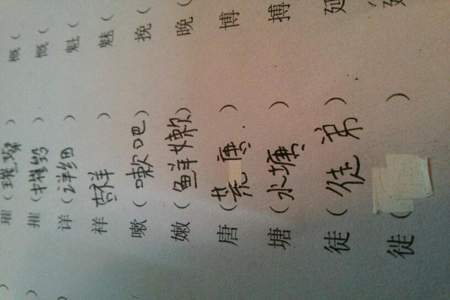 璀（璀璨） 概（
摧（摧毁） 慨（
详（详细） 魁（
祥（吉祥） 魅（
嗽（嗽吧） 挽（
嫩（鲜嫩） 晚（
唐（荒唐） 博（
塘（水塘） 搏（
徒（徒弟） 延（
徙（ ）